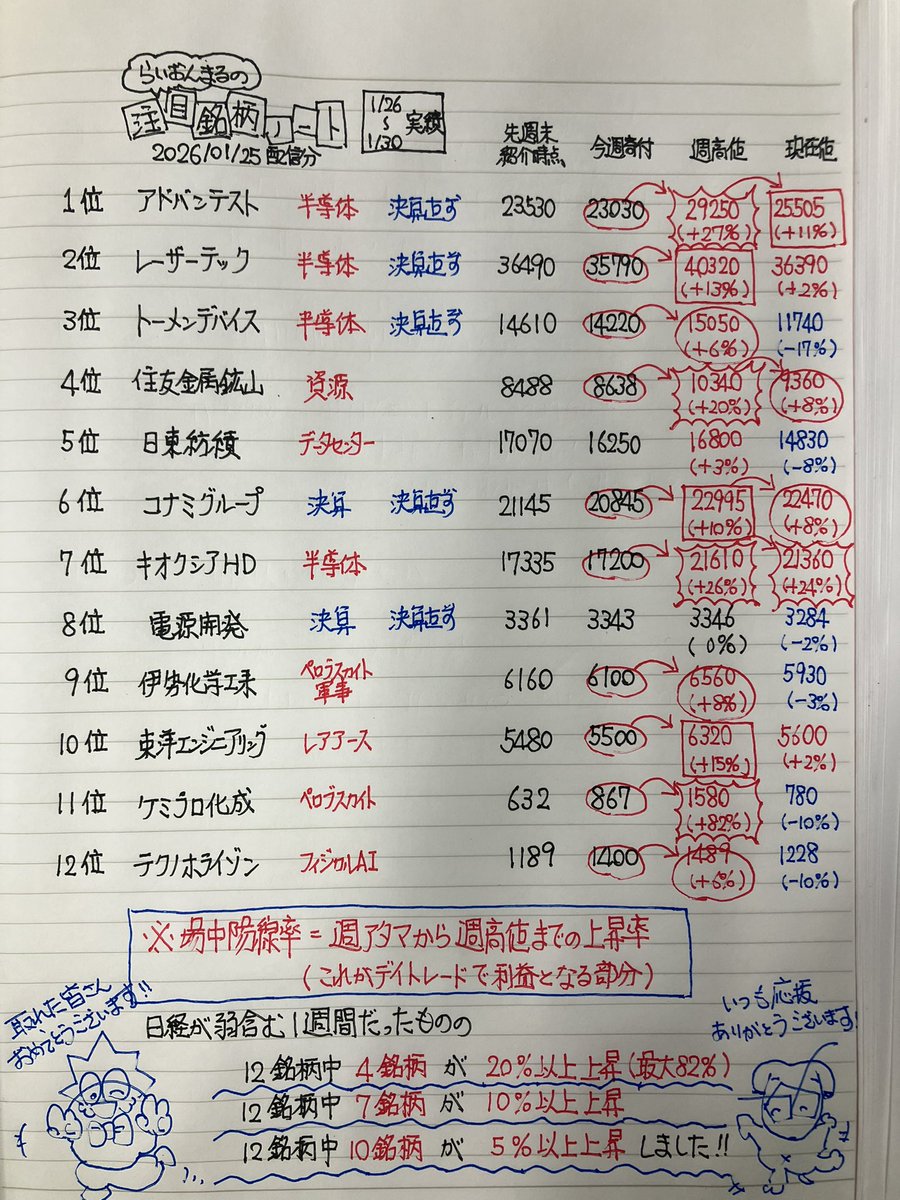 らいおんまるの
注目銘柄ノート
1/26～1/30 実績
2026/01/25配信分
先週末紹介時点 今週寄付 週高値 現在値
1位 アドバンテスト 半導体 決算直ず 23530 23030 29250 (+27%) 25505 (+11%)
2位 レーザーテック 半導体 決算直ず 36490 35790 40320 (+13%) 36390 (+2%)
3位 トーメンデバイス 半導体 決算直ず 14610 14220 15050 (+6%) 11740 (-17%)
4位 住友金属鉱山 資源 8488 8638 10340 (+20%) 9360 (+8%)
5位 日東紡績 データセンター 17070 16250 16800 (+3%) 14830 (-8%)
6位 コナミグループ 決算 決算直ず 21145 20845 22995 (+10%) 22470 (+8%)
7位 キオクシアHD 半導体 17335 17200 21610 (+26%) 21360 (+24%)
8位 電源開発 決算 決算直ず 3361 3343 3346 (0%) 3284 (-2%)
9位 伊勢化学工業 ペロブスカイト 軍事 6160 6100 6560 (+8%) 5930 (-3%)
10位 東洋エンジニアリング レアアース 5480 5500 6320 (+15%) 5600 (+2%)
11位 ケミプロ化成 ペロブスカイト 632 867 1580 (+82%) 780 (-10%)
12位 テクノホライゾン フィジカルAI 1189 1400 1489 (+6%) 1228 (-10%)
※場中陽線率=週アタマから週高値までの上昇率
(これがデイトレードで利益となる部分)
取れた皆さん
おめでとうございます!!
いつも応援
ありがとうございます!
日経が弱含む1週間だったものの
12銘柄中 4銘柄が 20%以上上昇(最大82%)
12銘柄中 7銘柄が 10%以上上昇
12銘柄中 10銘柄が 5%以上上昇しました!!